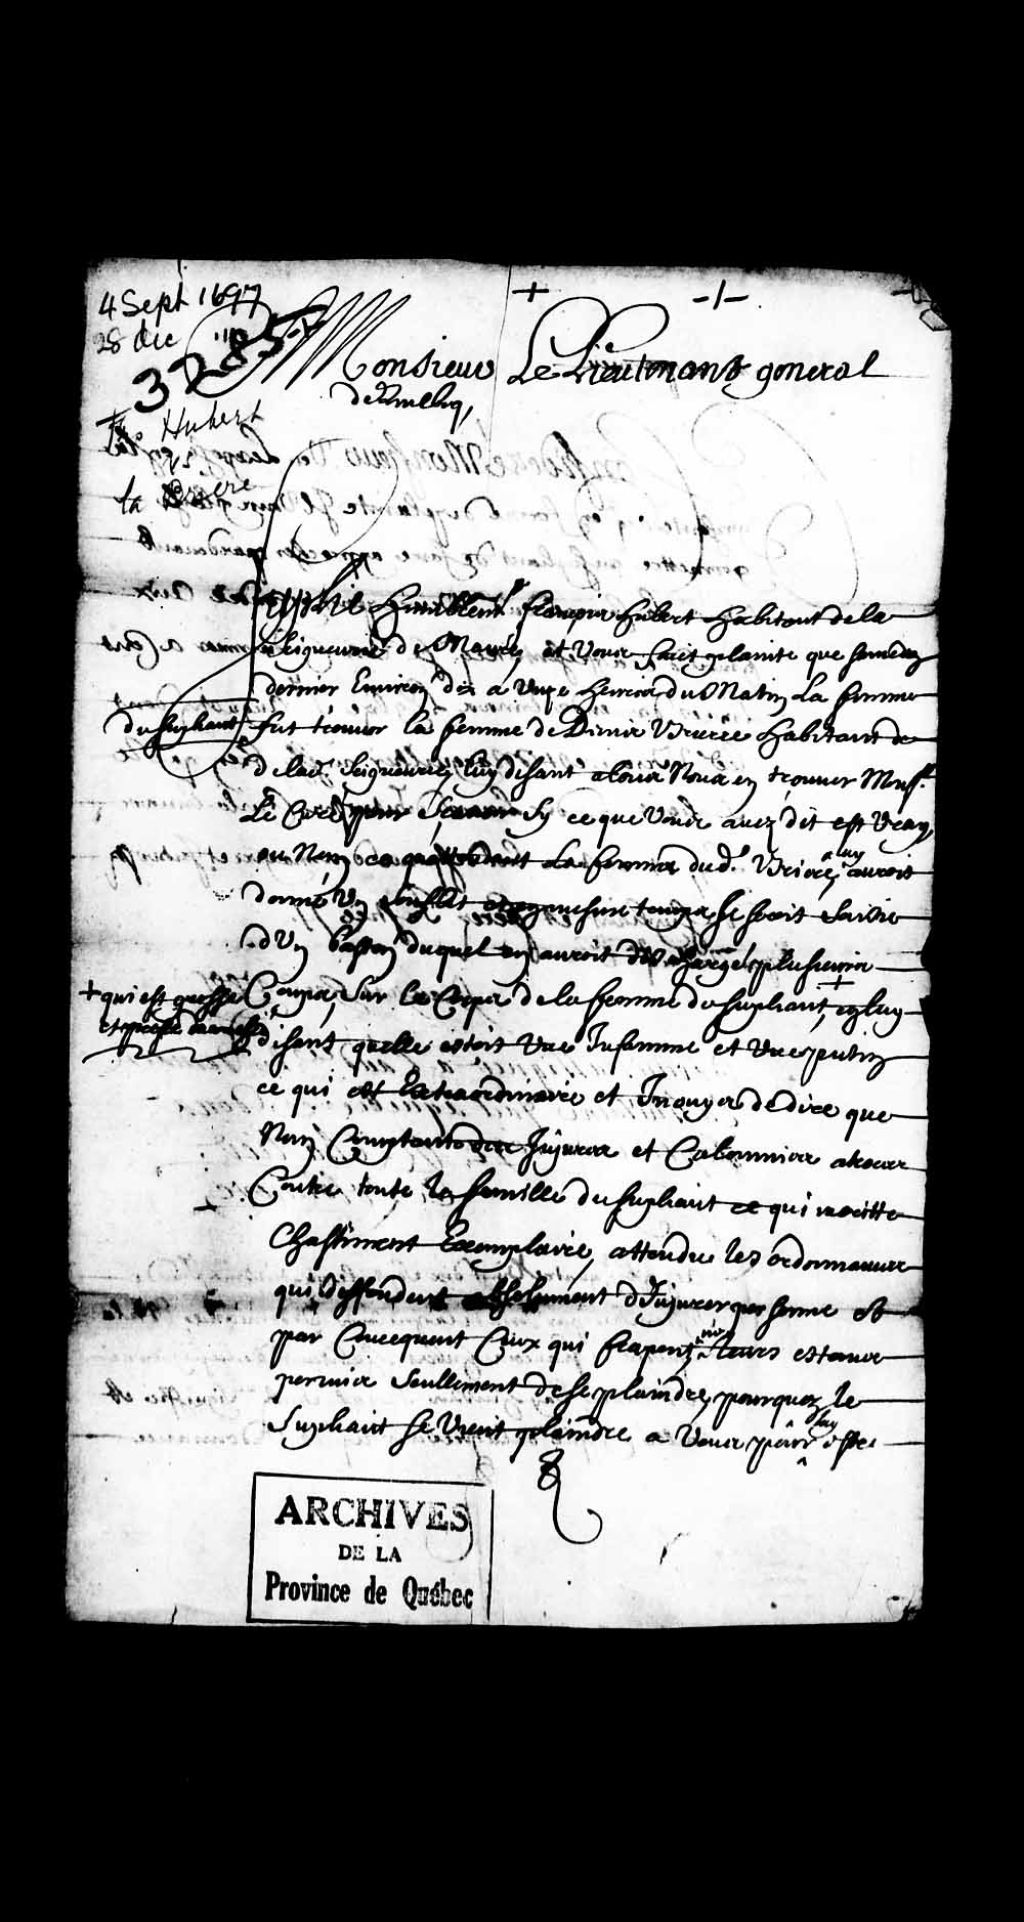 4 Sept 1697
28 dic "
3285-V
Monsieur Le Lieutenant general
de
Hubert
la Briere
Suplie humblemt francois hubert habitant de la
Seigneurie de Mauré et vous fait plainte que samedy
dernier Environ dix a unze heures du Matin La femme
du supliant fut trouver la femme de Brière habitant de
de lad. Seigneurie luy disant alons Nous en trouver Monsr.
Le Curé pour scavoir sy ce que vous avez dit est vray
ou Non La femme dud. Briere luy auroit
donné un soufflet et en mesme temps se seroit saisie
d'un baston duquel en auroit deschargé plusieurs
Coups, sur le Corps de la femme du supliant, + en luy
+ qui est grosse
et
disant quelle estoit une Infamme et une putin
ce qui est Extraordinaire et Inouy de dire que
Non Comptante des Injures et Calomnies atroces
Contre toute la famille du supliant ce qui meritte
Chastiment Exemplaire, attendu les ordonnances
qui deffendent absolument d'Injurer personne et
par Concequent Ceux qui frapent, estans
permis seullement de se plaindre, pourquoy le
Supliant se vient plaindre a vous pour luy estre
ARCHIVES
DE LA
Province de Québec